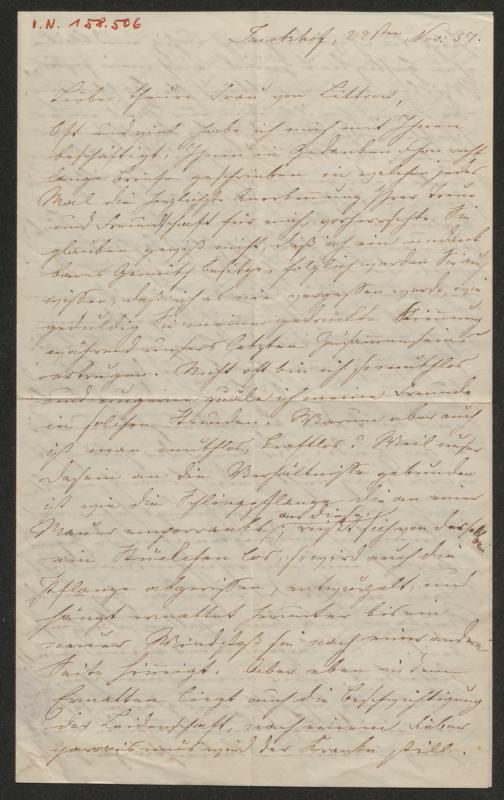 I.N. 158.506
Jacobshof, 22sten Nov: 57.
Liebe, theure Frau von Littrow,
Oft und viel habe ich mich mit Ihnen
beschäftigt, Ihnen in Gedanken schon recht
lange Briefe geschrieben in welchen jedes
Mal die herzlichste Anerkennung Ihrer Treue
und Freundschaft für mich vorherrschte. Sie
glauben gewiß nicht, daß ich ein undank
bares Gemüth besitze, folglich werden Sie auch
wissen, daß ich es nie vergessen werde, wie
geduldig Sie meine gedrückte Stimmung
während unsers letzten Zusammenseins
ertrugen. Nicht oft bin ich so muthlos
und ungern quäle ich meine Freunde
in solchen Stunden. Warum aber auch
ist man muthlos, kraftlos? Weil unser
Dasein an die Verhältnisse gebunden
ist wie die Schlingpflanze die an einer
Mauer emporrankt; reißt sich von
ein Stückchen los, so wird auch die
Pflanze abgerissen, entwurzelt, und
hängt ermattet herunter bis ein
neuer Windstoß sie nach einer andern
Seite hinneigt. Aber eben in dem
Ermatten liegt auch die Beschwichtigung
der Leidenschaft, nach einem Fieber
paroxismus wird der Kranke still.